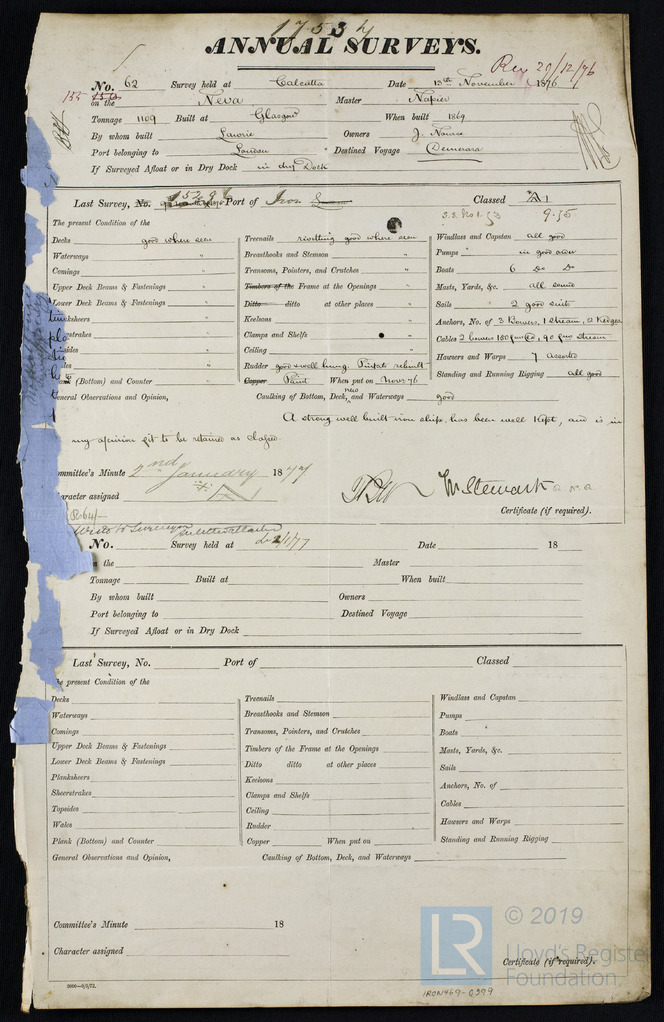 17534
ANNUAL SURVEYS.
Rec 20/12/76
No. 62 Survey held at Calcutta Date 13th November 1876
155
on the Neva Master Napier
Tonnage 1109 Built at Glasgow When built 1869
By whom built Lawrie Owners J. Nourse
Port belonging to London Destined Voyage Demerara
If Surveyed Afloat or in Dry Dock in dry Dock
Last Survey, No. Port of Iron Classed A1
S.S. No 1. 9.75
The present Condition of the
Decks good where seen
Waterways "
Comings "
Upper Deck Beams & Fastenings "
Lower Deck Beams & Fastenings "
ksheers "
strakes "
sides "
les "
(Bottom) and Counter "
General Observations and Opinion,
Treenails rivetting good where seen
Breasthooks and Stemson "
Transoms, Pointers, and Crutches "
Timbers of the Frame at the Openings "
Ditto ditto at other places "
Keelsons "
Clamps and Shelfs "
Ceiling "
Rudder good & well hung. Pintals rebuilt
Copper Paint When put on Novr. 76
Caulking of Bottom, Deck, and Waterways good
new
Windlass and Capstan all good
Pumps " in good order
Boats 6 Do Do
Masts, Yards, &c. all sound
Sails 2 good suits
Anchors, No. of 3 Bowers, 1 stream, 2 Kedges
Cables 2 bowers 150 fms each, 90 fms stream
Hawsers and Warps 7 assorted
Standing and Running Rigging all good
A strong well built iron ship, has been well kept, and is in
my opinion fit to be retained as classed.
Committee's Minute 2nd January 1877
Character assigned A1
M Stewart
Certificate (if required).
Write to Surveyor
2/1/77
No. Survey held at Date 18
on the Master
Tonnage Built at When built
By whom built Owners
Port belonging to Destined Voyage
If Surveyed Afloat or in Dry Dock
Last Survey, No. Port of Classed
The present Condition of the
Decks
Waterways
Comings
Upper Deck Beams & Fastenings
Lower Deck Beams & Fastenings
Planksheers
Sheerstrakes
Topsides
Wales
Plank (Bottom) and Counter
General Observations and Opinion,
Treenails
Breasthooks and Stemson
Transoms, Pointers, and Crutches
Timbers of the Frame at the Openings
Ditto ditto at other places
Keelsons
Clamps and Shelfs
Ceiling
Rudder
Copper When put on
Caulking of Bottom, Deck, and Waterways
Windlass and Capstan
Pumps
Boats
Masts, Yards, &c.
Sails
Anchors, No. of
Cables
Hawsers and Warps
Standing and Running Rigging
Committee's Minute 18
Character assigned
Certificate (if required).
2000—9/2/72.
IRON469-0399
LR
© 2019
Lloyd's Register
Foundation